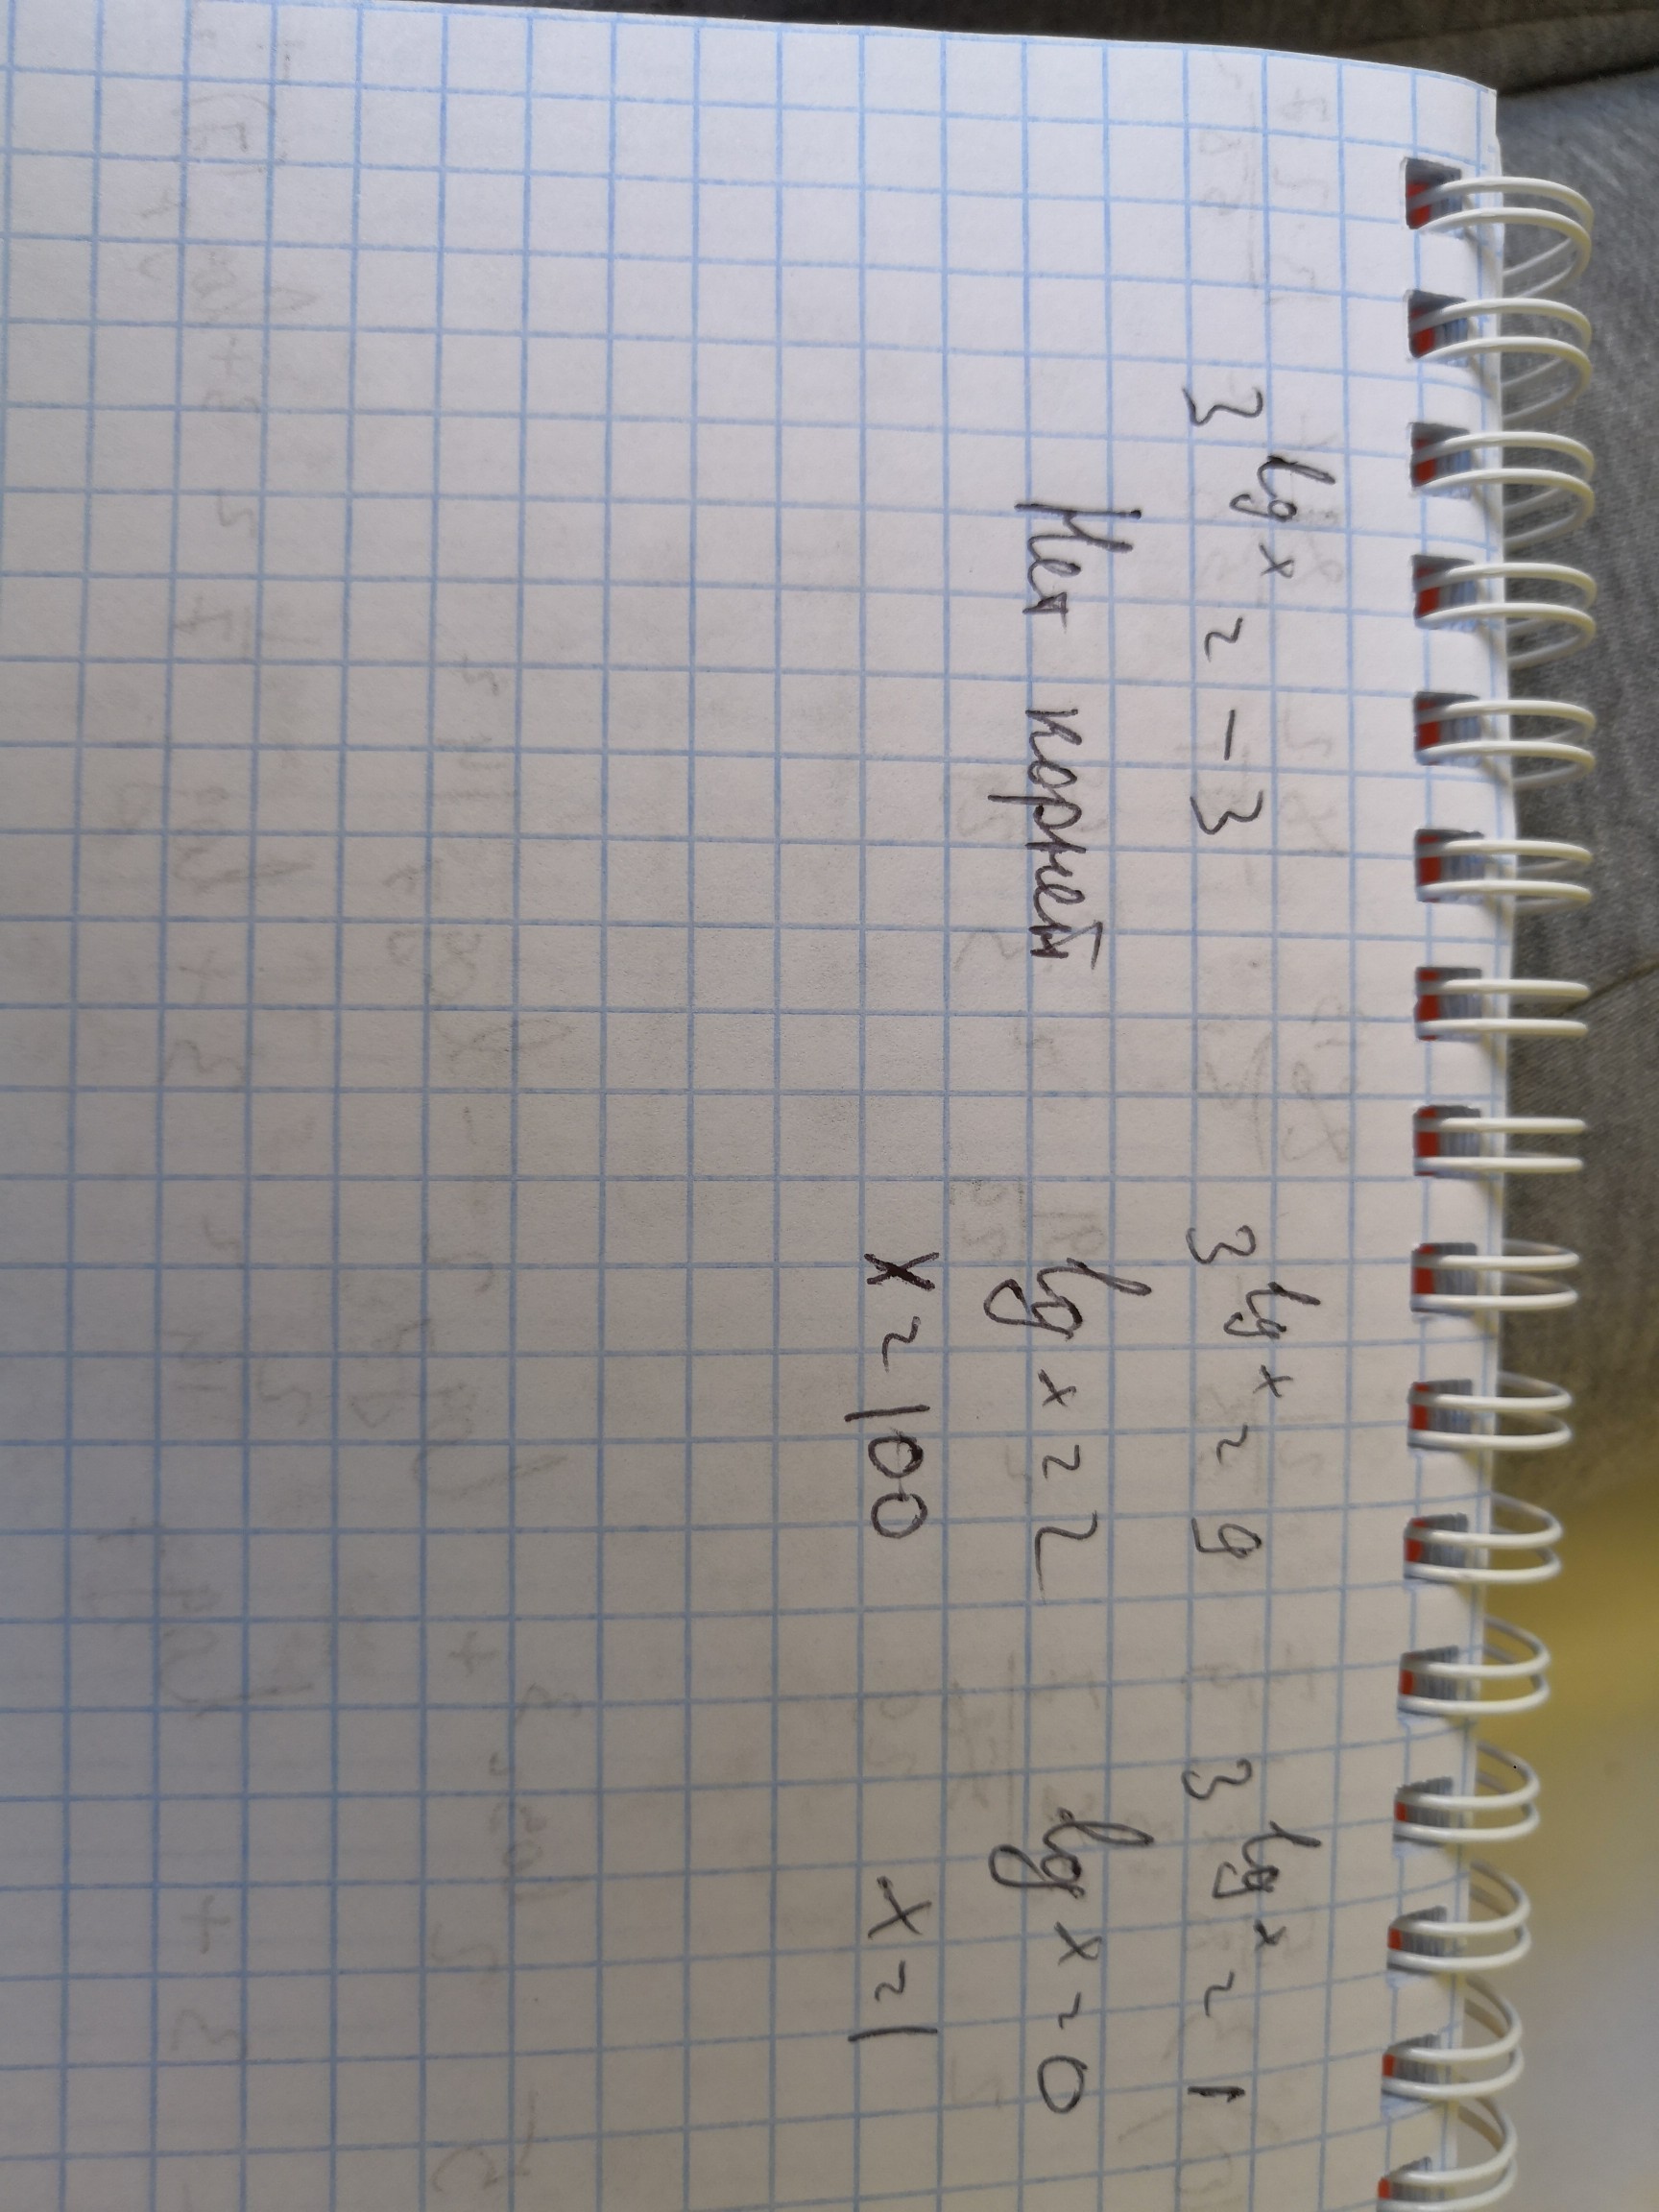 3^lg x = -3 3^lg x = 9 3^lg x = 1
Нет корней lg x = 2 lg x = 0
x = 100 x = 1